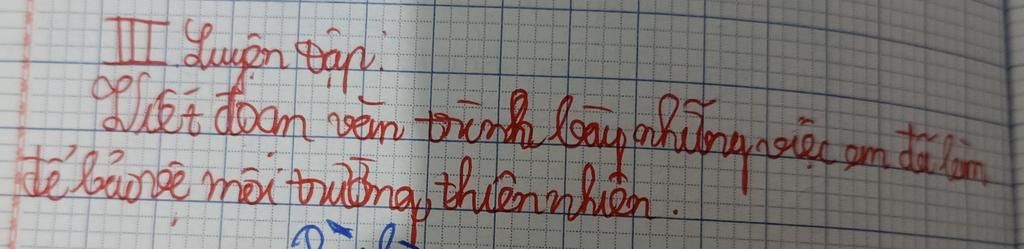 III Luyện tập.
Viết đoạn văn trình bày những việc em đã làm
để bảo vệ môi trường, thiên nhiên.